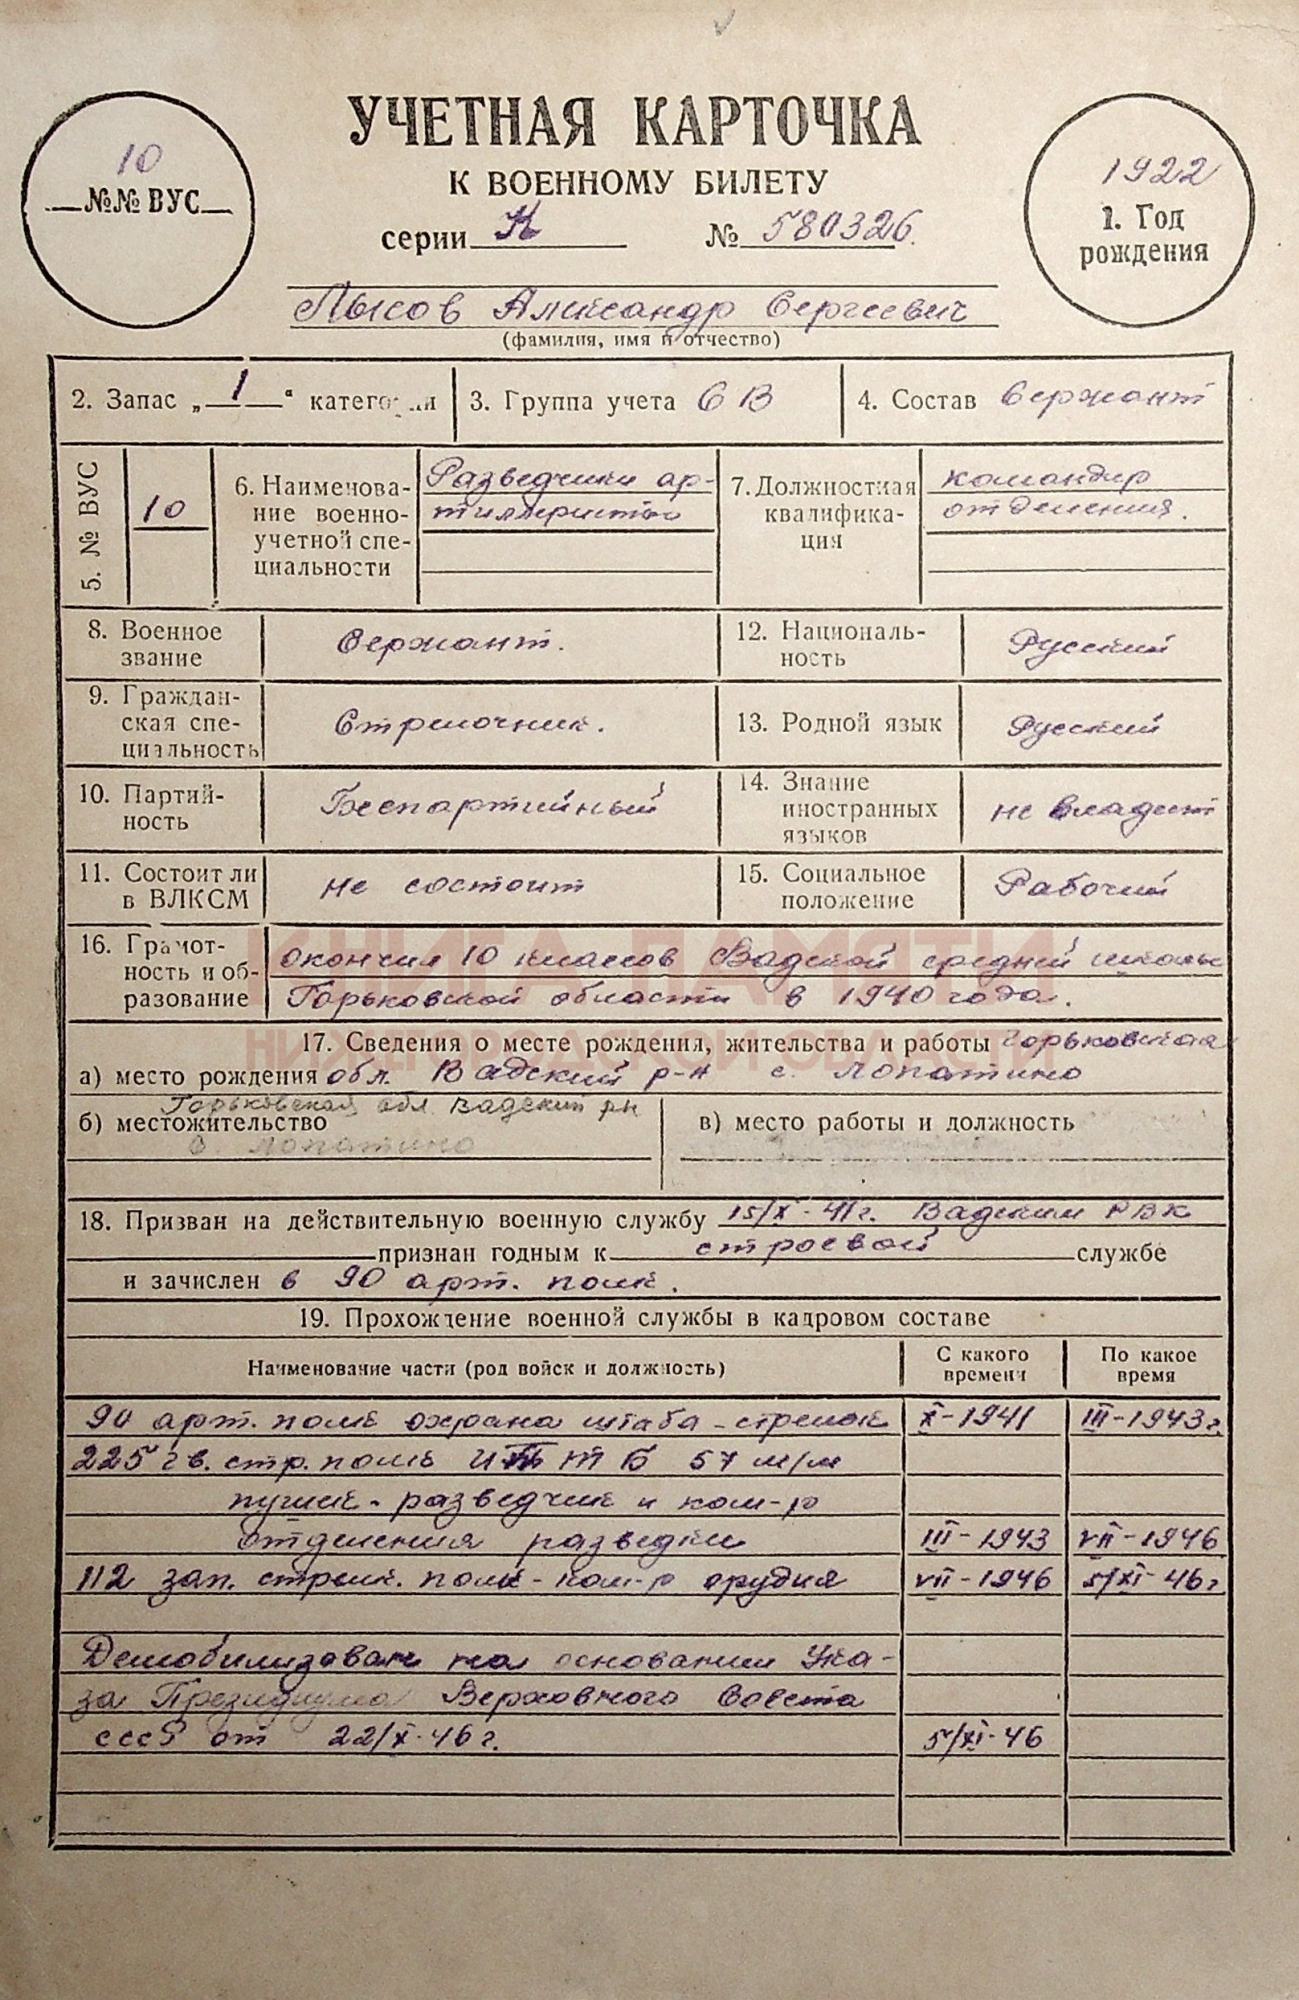 УЧЕТНАЯ КАРТОЧКА
К ВОЕННОМУ БИЛЕТУ
серии К № 580326.
10
№№ ВУС
1922
1. Год
рождения
Лысов Александр Сергеевич
(фамилия, имя и отчество)
2. Запас „ 1 “ категории
3. Группа учета СВ
4. Состав Сержант
5. № ВУС
10
6. Наименова-
ние военно-
учетной спе-
циальности
Разведчики ар-
тиллеристы
7. Должностная
квалифика-
ция
командир
отделения.
8. Военное
звание
Сержант.
12. Националь-
ность
Русский
9. Граждан-
ская спе-
циальность
Стрелочник.
13. Родной язык
Русский
10. Партий-
ность
Беспартийный
14. Знание
иностранных
языков
не владеет
11. Состоит ли
в ВЛКСМ
не состоит
15. Социальное
положение
Рабочий
16. Грамот-
ность и об-
разование
окончил 10 классов Вадской средней школы
Горьковской области в 1940 года.
КНИГА ПАМЯТИ
НИЖЕГОРОДСКОЙ ОБЛАСТИ
17. Сведения о месте рождения, жительства и работы Горьковская
а) место рождения обл. Вадский р-н с. Лопатино
Горьковская обл. Вадский рн
б) местожительство
с. Лопатино
в) место работы и должность
18. Призван на действительную военную службу 15/X-41г. Вадским РВК
признан годным к строевой службе
и зачислен в 90 арт. полк.
19. Прохождение военной службы в кадровом составе
Наименование части (род войск и должность)
С какого
времени
По какое
время
90 арт. полк охрана штаба - стрелок X-1941 III-1943г.
225 гв. стр. полк ИПТБ 57 м/м
пушек - разведчик и ком-р
отделения разведки III-1943 VII-1946
112 зап. стрелк. полк - ком-р орудия VII-1946 5/XI-46г
Демобилизован на основании Ука-
за Президиума Верховного Совета
СССР от 22/X-46г. 5/XI-46